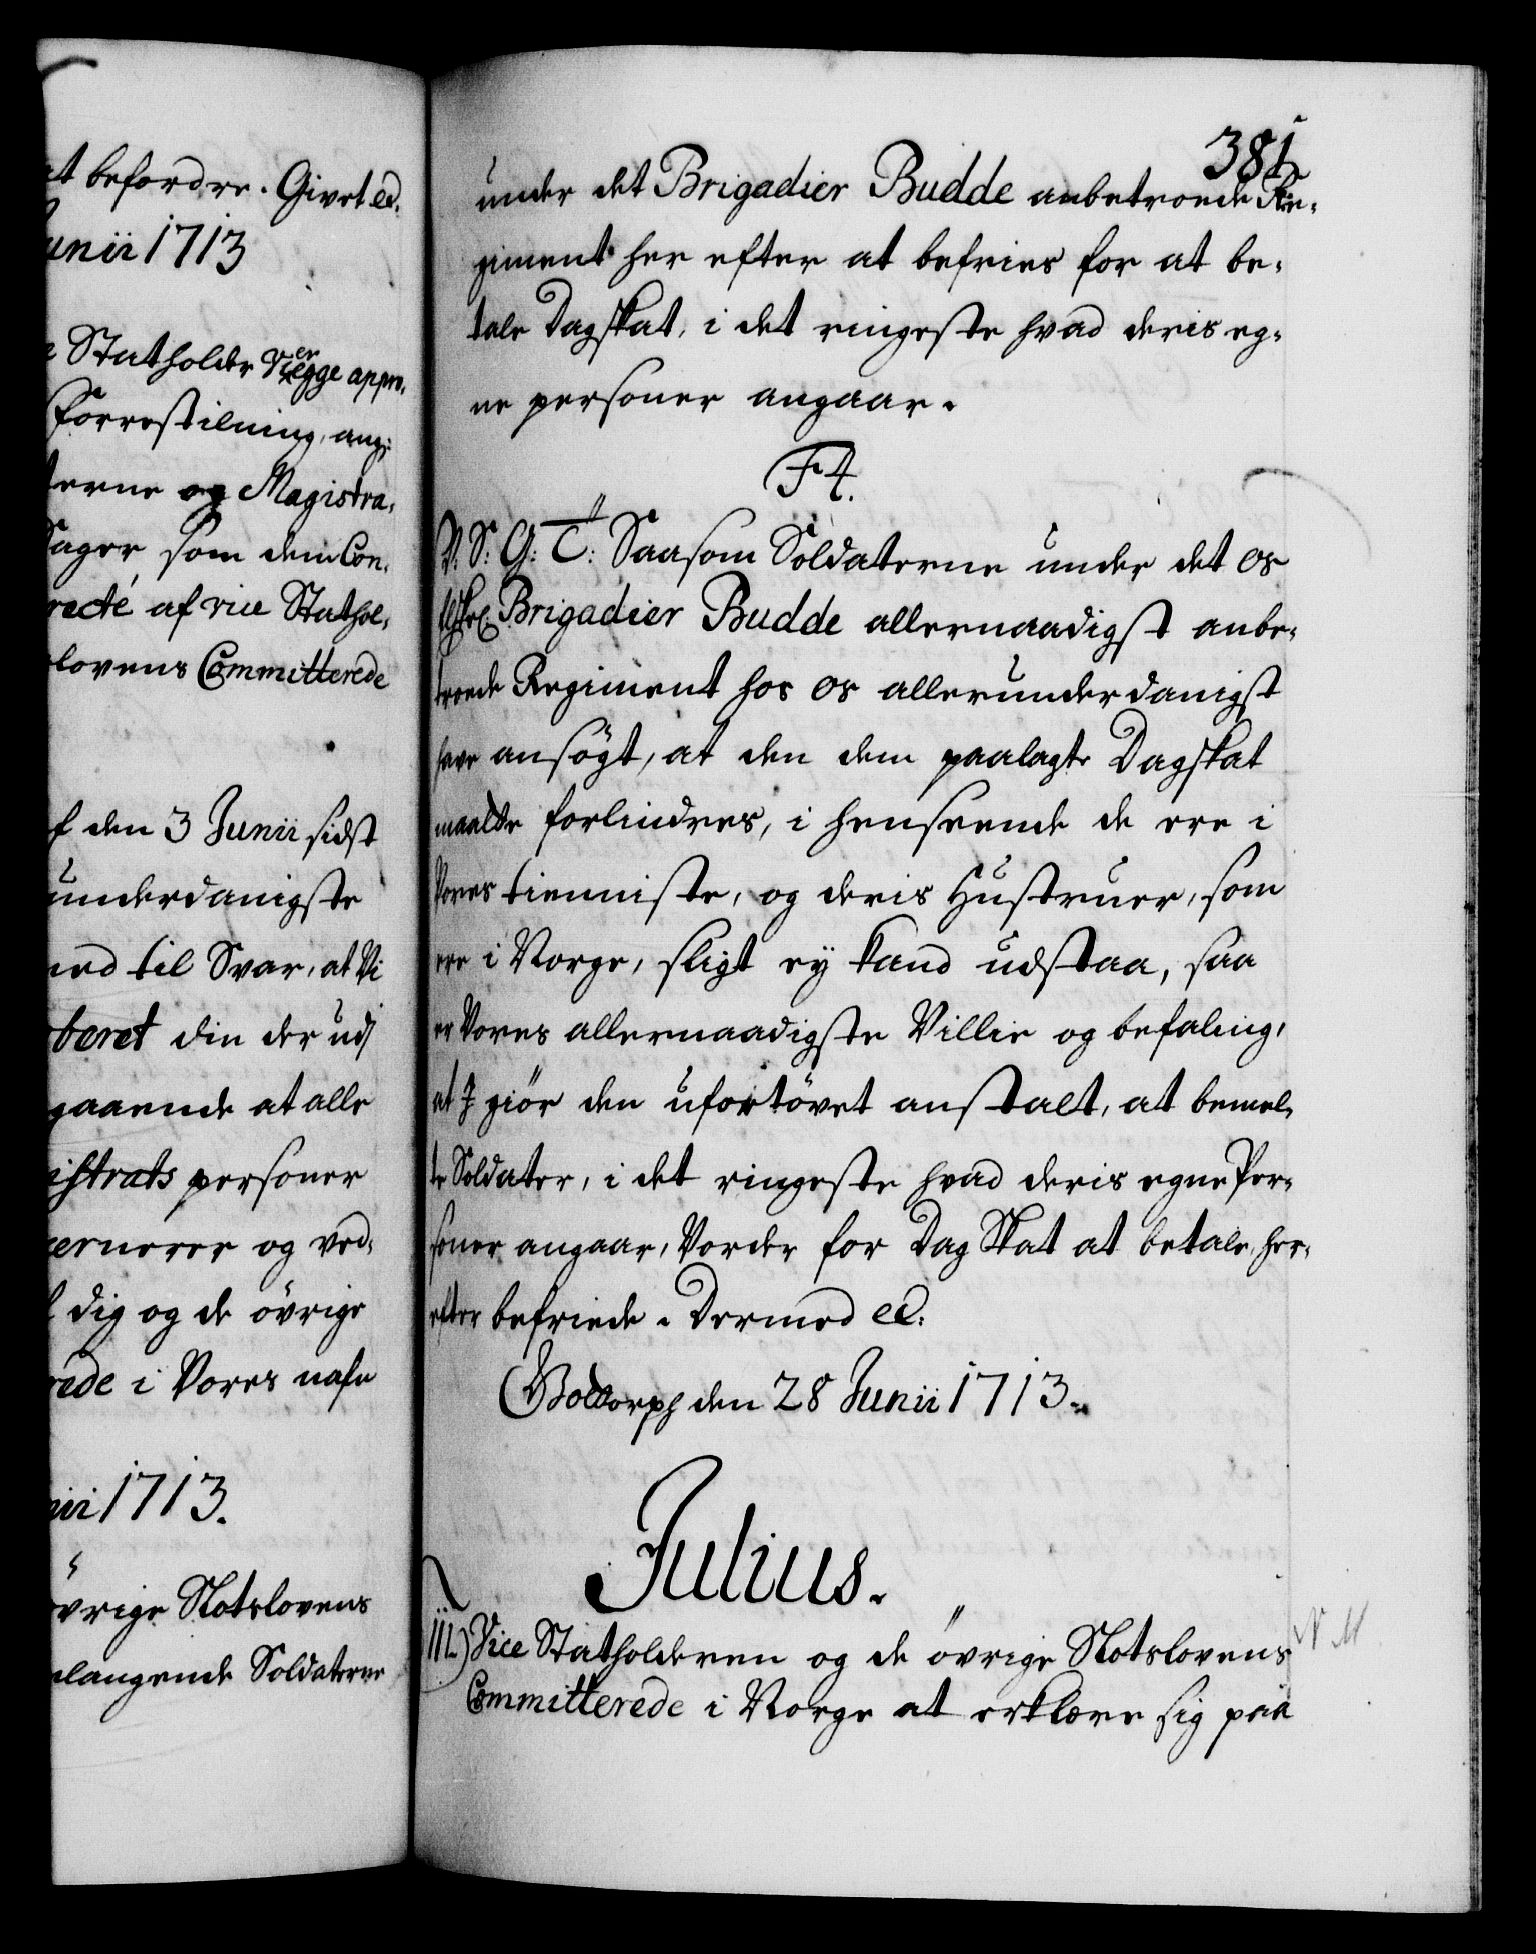 at befordre. Givet ec.
unii 1713
Statholder Vegge appro-
forrestilning, ang:
terne og Magistra-
Sager som dem Con-
recte af vice Stathol-
slovens Committerede
f den 3 Junii sidst
underdanigste
til Svar, at Vi
beret din der udj
gaaende at alle
istrats personer
cernerer og ved-
dig og de övrige
rede i Vores nafn
nii 1713.
övrige Slotslovens
langende Soldaterne
381
under det Brigadier Budde anbetroede Re-
giment her efter at befries for at be-
tale Dagskat, i det ringeste hvad deris eg-
ne personer angaar.
F4.
V. S: G: T: Saasom Soldaterne under det os
Elskel: Brigadier Budde allernaadigst anbe-
troede Regiment hos os allerunderdanigst
have ansögt, at den dem paalagte Dagskat
maatte forlindres, i henseende de ere i
Vores tienniste, og deris Hustruer, som
ere i Norge, sligt ey kand udstaa, saa
er Vores allernaadigste Villie og befaling,
at I giör den ufortövet anstalt, at bemel-
te Soldater, i det ringeste hvad deris egne Per-
soner angaar, Vorder for Dag Skat at betale, her-
efter befriede. Dermed ec:
Gottorph den 28 Junii 1713.
Julius.
111.) Vice Statholderen og de övrige Slotslovens
N M
Committerede i Norge at erklære sig paa